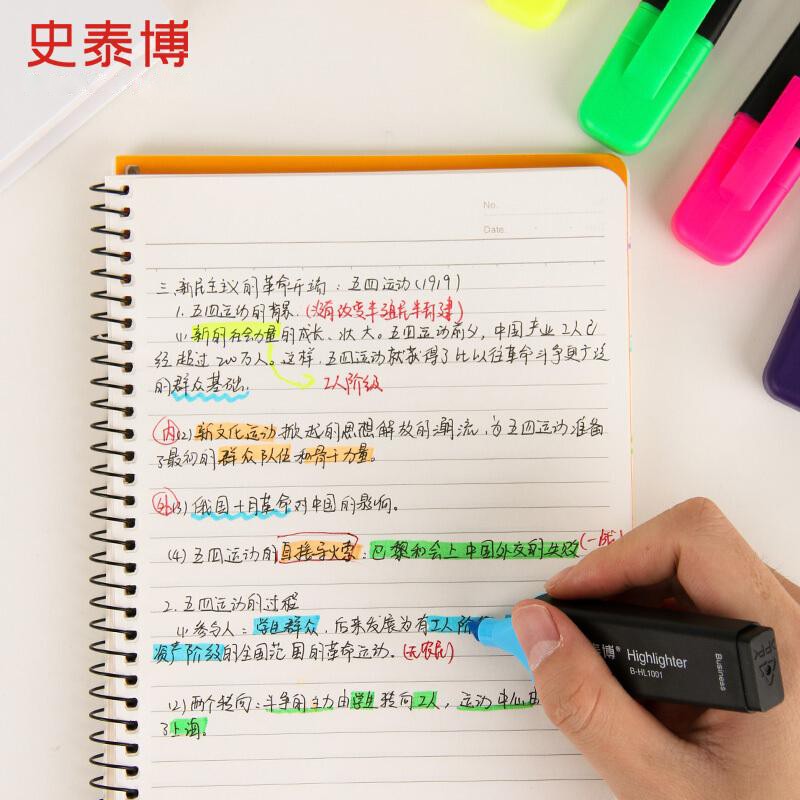 史泰博
No.
Date.
三、新民主义的革命开端：五四运动(1919)
1.五四运动的背景.(没有改变半殖民半封建)
(1) 新的社会力量的成长、壮大。五四运动前夕，中国产业工人已
经超过200万人。这样，五四运动就获得了比以往革命斗争更广泛
的群众基础.
工人阶级
内(2)新文化运动掀起的思想解放的潮流，为五四运动准备
了最初的群众队伍和骨干力量。
外(3)俄国十月革命对中国的影响。
(4)五四运动的直接导火索：巴黎和会上中国外交的失败(一战)
2.五四运动的过程
(1)参与人：学生群众，后来发展为有工人阶
资产阶级的全国范围的革命运动。(无农民)
(2)两个转向：斗争的主力由学生转向工人，运动中心由
了上海。
泰博® Highlighter
B-HL1001
Business